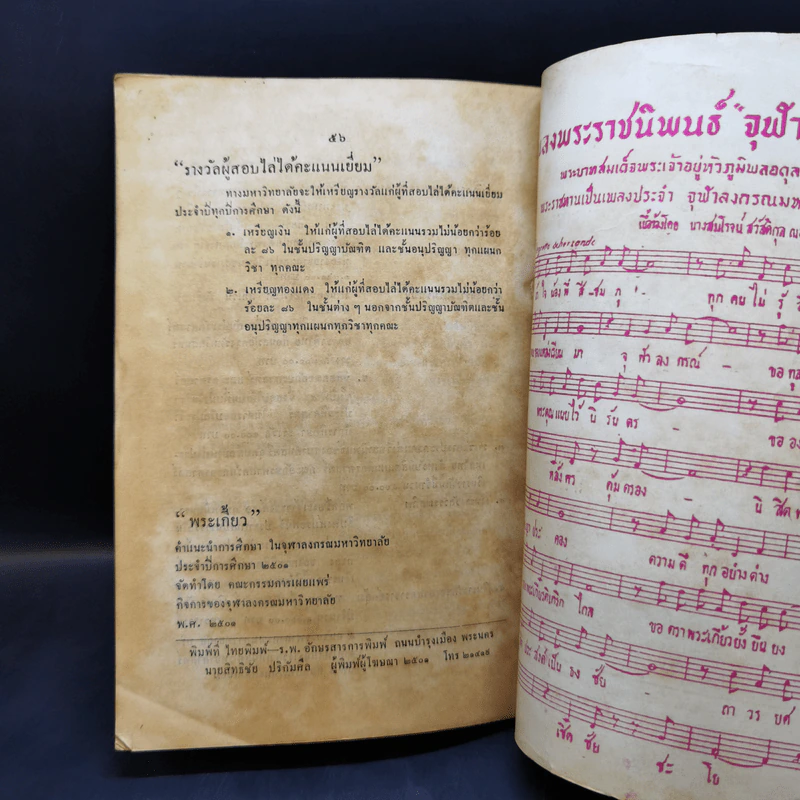 ๕๖
“รางวัลผู้สอบไล่ได้คะแนนเยี่ยม”
ทางมหาวิทยาลัยจะให้เหรียญรางวัลแก่ผู้ที่สอบไล่ได้คะแนนเยี่ยม
ประจำปีทุกปีการศึกษา ดังนี้
๑. เหรียญเงิน ให้แก่ผู้ที่สอบไล่ได้คะแนนรวมไม่น้อยกว่าร้อย
ละ ๘๖ ในชั้นปริญญาบัณฑิต และชั้นอนุปริญญา ทุกแผนก
วิชา ทุกคณะ
๒. เหรียญทองแดง ให้แก่ผู้ที่สอบไล่ได้คะแนนรวมไม่น้อยกว่า
ร้อยละ ๘๖ ในชั้นต่าง ๆ นอกจากชั้นปริญญาบัณฑิตและชั้น
อนุปริญญาทุกแผนกทุกวิชาทุกคณะ
“พระเกี้ยว”
คำแนะนำการศึกษา ในจุฬาลงกรณมหาวิทยาลัย
ประจำปีการศึกษา ๒๕๐๑
จัดทำโดย คณะกรรมการเผยแพร่
กิจการของจุฬาลงกรณมหาวิทยาลัย
พ.ศ. ๒๕๐๑
พิมพ์ที่ ไทยพิมพ์—ร.พ. อักษรสารการพิมพ์ ถนนบำรุงเมือง พระนคร
นายสิทธิชัย ปริกัมศีล ผู้พิมพ์ผู้โฆษณา ๒๕๐๑ โทร ๒๑๔๑๙
ลงพระราชนิพนธ์ “จุฬา
พระบาทสมเด็จพระเจ้าอยู่หัวภูมิพลอดุล
พระราชทานเป็นเพลงประจำ จุฬาลงกรณมห
ทุก คน ไม่ รู้
มา จุ ฬา ลง กรณ์ - ขอ ทูล
พระคุณแนบไว้ นิ รัน ดร - ขอ อง
คุ้ม ครอง - นิ สิต
คอง ความ ดี ทุก อย่าง ต่าง
ไกล ขอ ตรา พระเกี้ยวยั่ง ยืน ยง
เป็น ธง ชัย ถา วร ยศ
เชิด ชัย ชะ โย